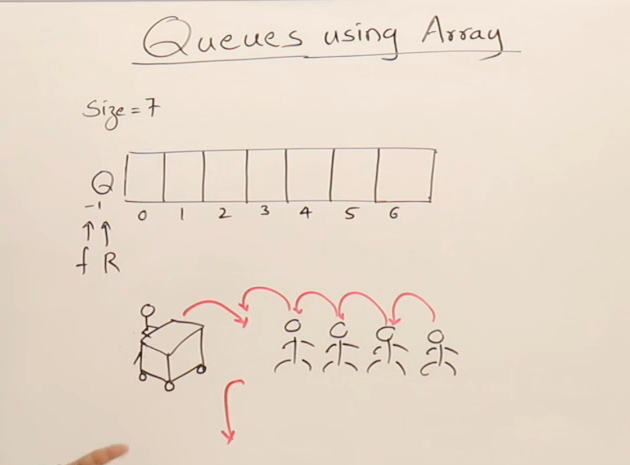 Queues using Array
Size = 7
Q
-1 0 1 2 3 4 5 6
f R